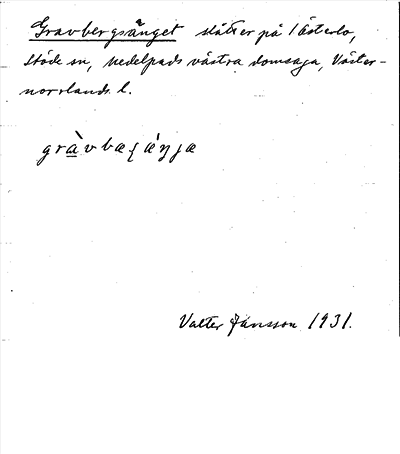 Gravbergsänget slåtter på Österlo,
Stöde sn, Medelpads västra domsaga, Väster-
norrlands l.
Valter Jansson 1931.